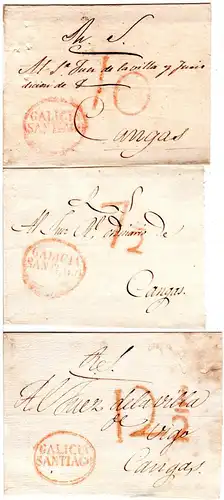 A. S.
10
Al Sr. Juez de la villa y Juris
diccion de
GALICIA
SANTIAGO
Cangas
S.
7 1/2
Al Sor.
de
GALICIA
SANTIAGO
Cangas.
A S.
12 1/2
Al Juez de la villa
de Vigo
GALICIA
SANTIAGO
Cangas.